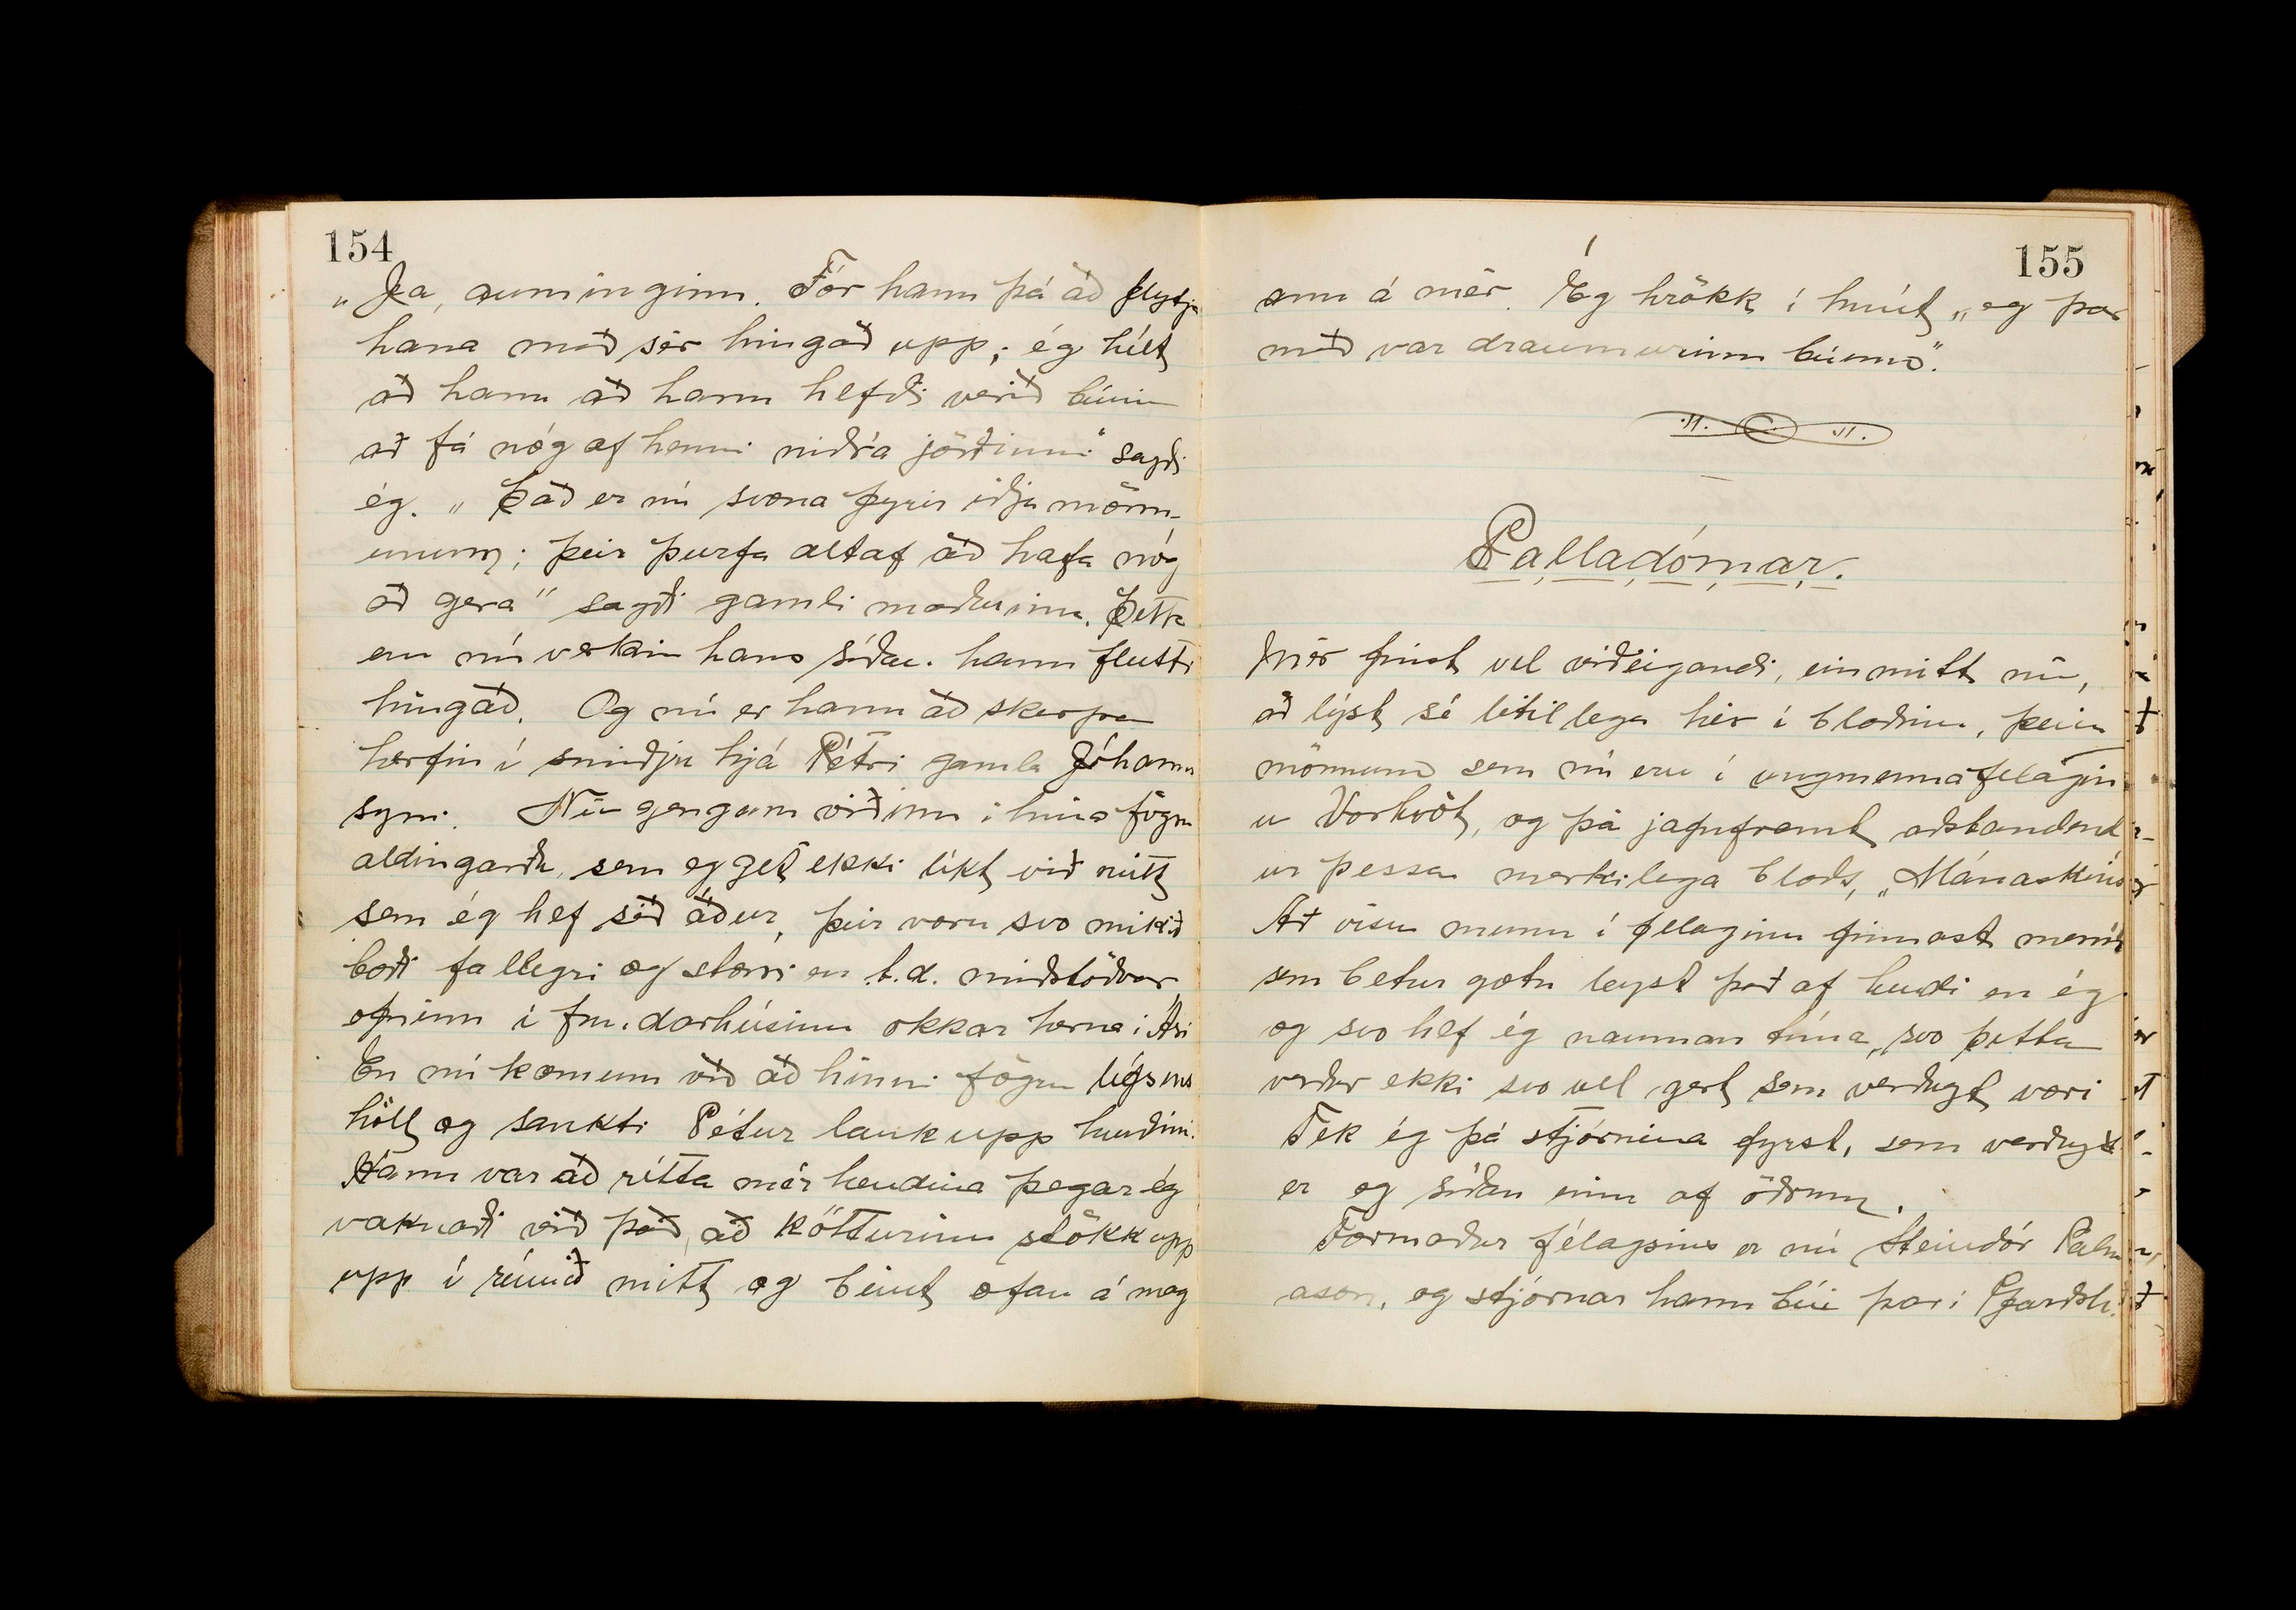 154
„Ja, auminginn. Fór hann þá að flytja
hana með sér hingað upp; ég hélt
að hann að hann hefði verið búinn
að fá nóg af henni niðrá jörðinni“ sagði
ég. „Það er nú svona fyrir iðju mönn-
unum; þeir þurfa altaf að hafa nóg
að gera“ sagði gamli maðurinn. Þetta
eru nú verkin hans síðan hann flutti
hingað. Og nú er hann að skerpa
herfin í smiðju hjá Pétri gamla Jóhanns
syni. Nú gengum við inn í hina fögru
aldingarða, sem eg get ekki líkt við neitt
sem ég hef séð áður, þeir voru svo mikið
bæði fallegri og stærri en t.d. miðstöðvar
ofninn í fundarhúsinu okkar hérna í Ási
En nú komum við að hinni fögru lífsins
höll og sankti Pétur lauk upp hurðinni.
Hann var að rétta mér hendina þegar ég
vaknaði við það, að kötturinn stökk upp
upp í rúmið mitt og beint ofan á mag
155
ann á mér. Ég hrökk í hnút, „og þar
með var draumurinn búinn“.
Palladómar.
Mér finst vel viðeigandi, einmitt nú,
að lýst sé lítillega hér í blaðinu, þeim
mönnum sem nú eru í ungmennafélagin
u Vorhvöt, og þá jafnframt aðstandend
ur þessa merkilega blaðs, „Mánaskins
Að vísu munu í félaginu finnast menn
sem betur gætu leyst það af hendi en ég
og svo hef ég nauman tíma, svo þetta
verður ekki svo vel gert sem verðugt væri
Tek ég þá stjórnina fyrst, sem verðugt
er og síðan einn af öðrum.
Formaður félagsins er nú Steindór Pálm
ason, og stjórnar hann búi þar í